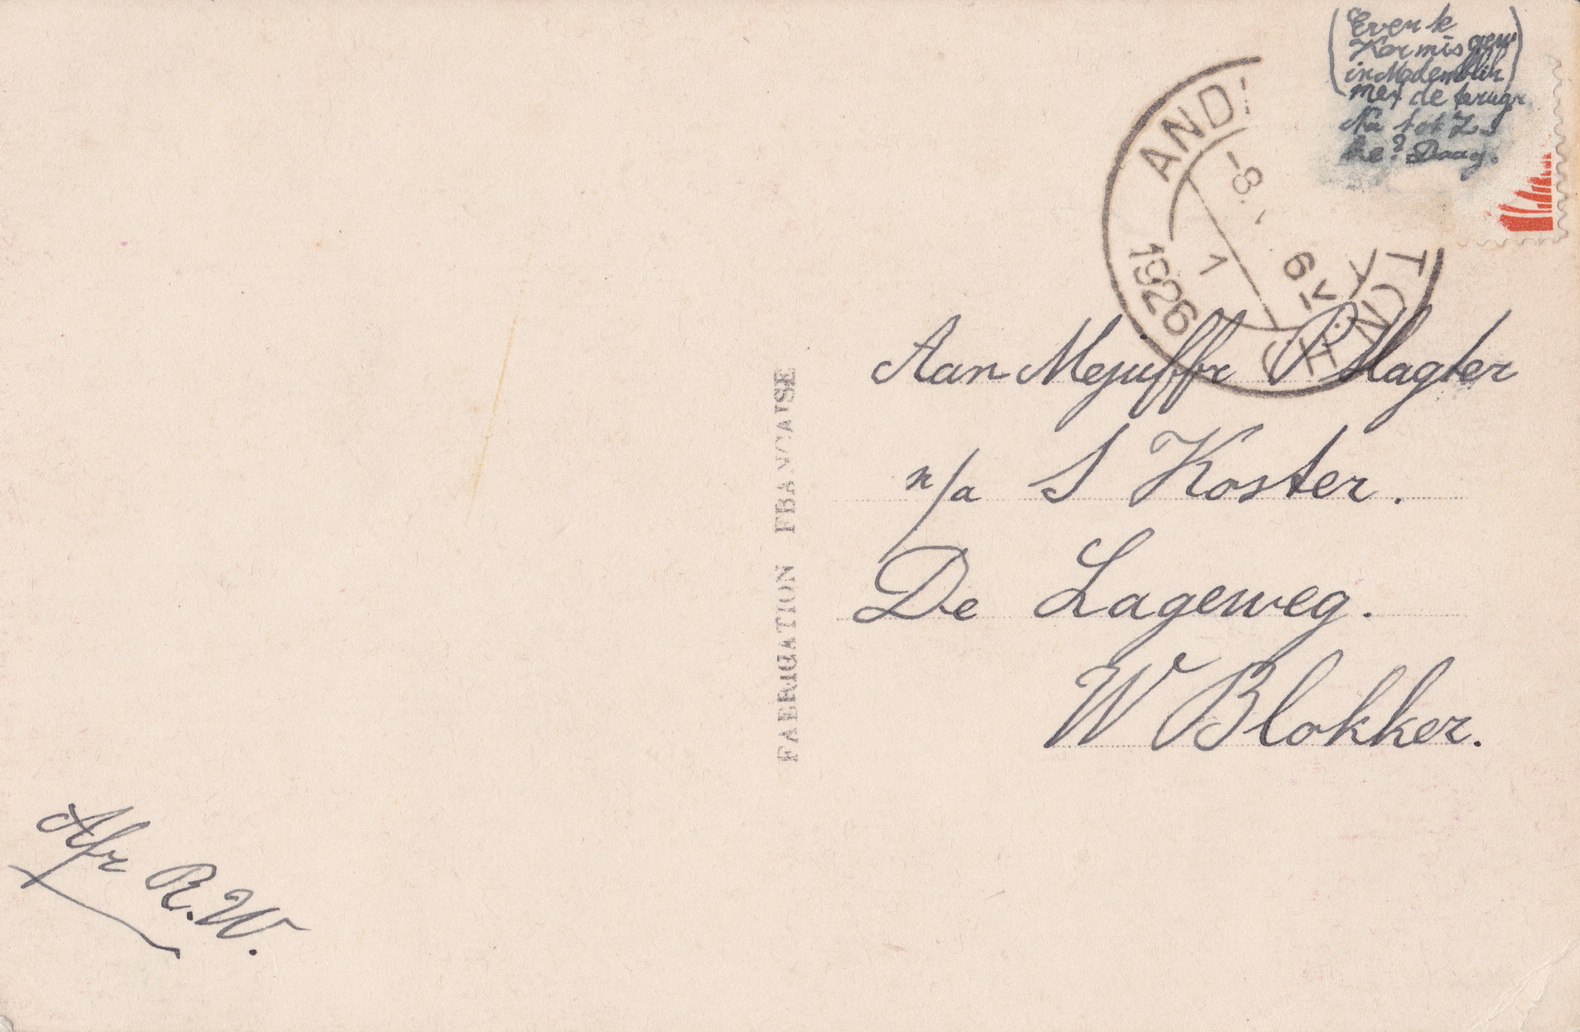 (Even k
Kermis gew
in Medemblik)
met de terugr
Na tot Z.
he? Daag.
AND
-8.
1
6 V
1926
Aan Mejuffr P Slagter
n/a S Koster.
De Lageweg.
W Blokker.
FABRICATION FRANÇAISE
Afr R.W.